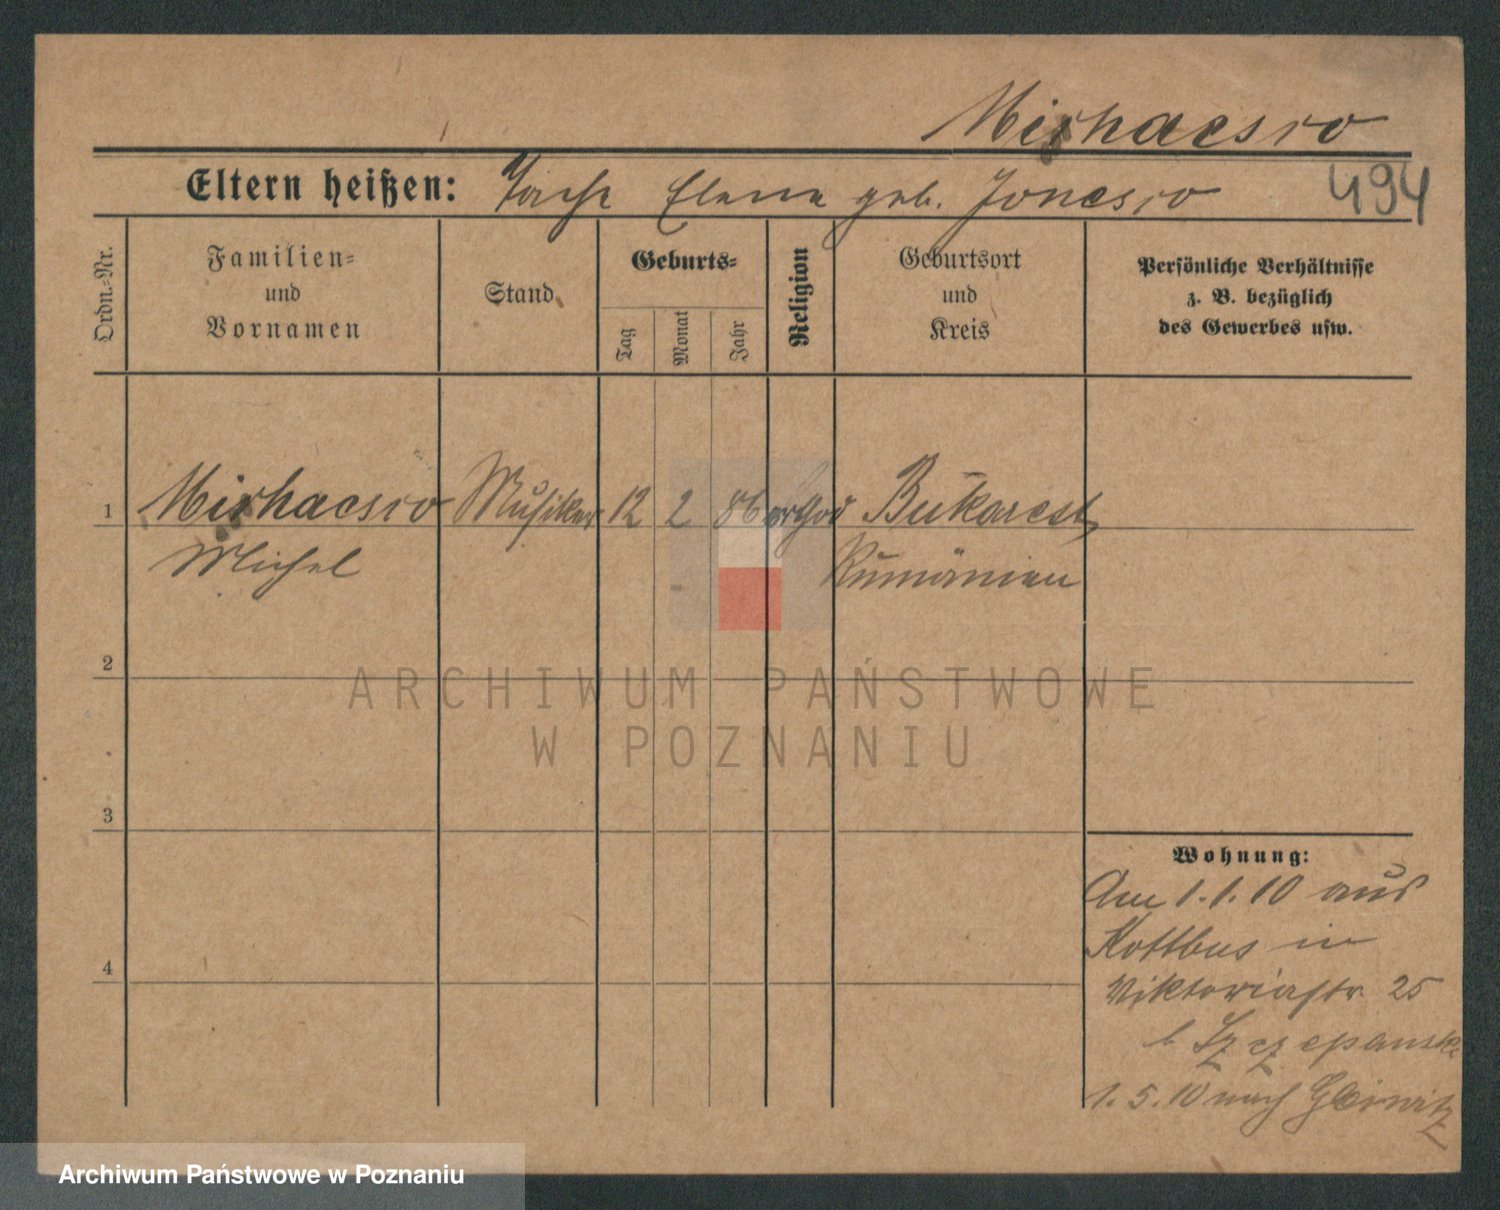 Mirhaesco
Eltern heißen: Elena geb. Jonesco 494
Ordn.-Nr.
Familien-
und
Vornamen
Stand
Geburts-
Tag
Monat
Jahr
Religion
Geburtsort
und
Kreis
Persönliche Verhältnisse
z. B. bezüglich
des Gewerbes usw.
1 Mirhaesco Musiker 12 2 86 orthod Bukarest
Michel Rumänien
2
ARCHIWUM PAŃSTWOWE
W POZNANIU
3
Wohnung:
Am 1.1.10 aus
Kottbus in
4
Viktoriastr 25
b Szczepanski
1.5.10 nach Gleiwitz
Archiwum Państwowe w Poznaniu